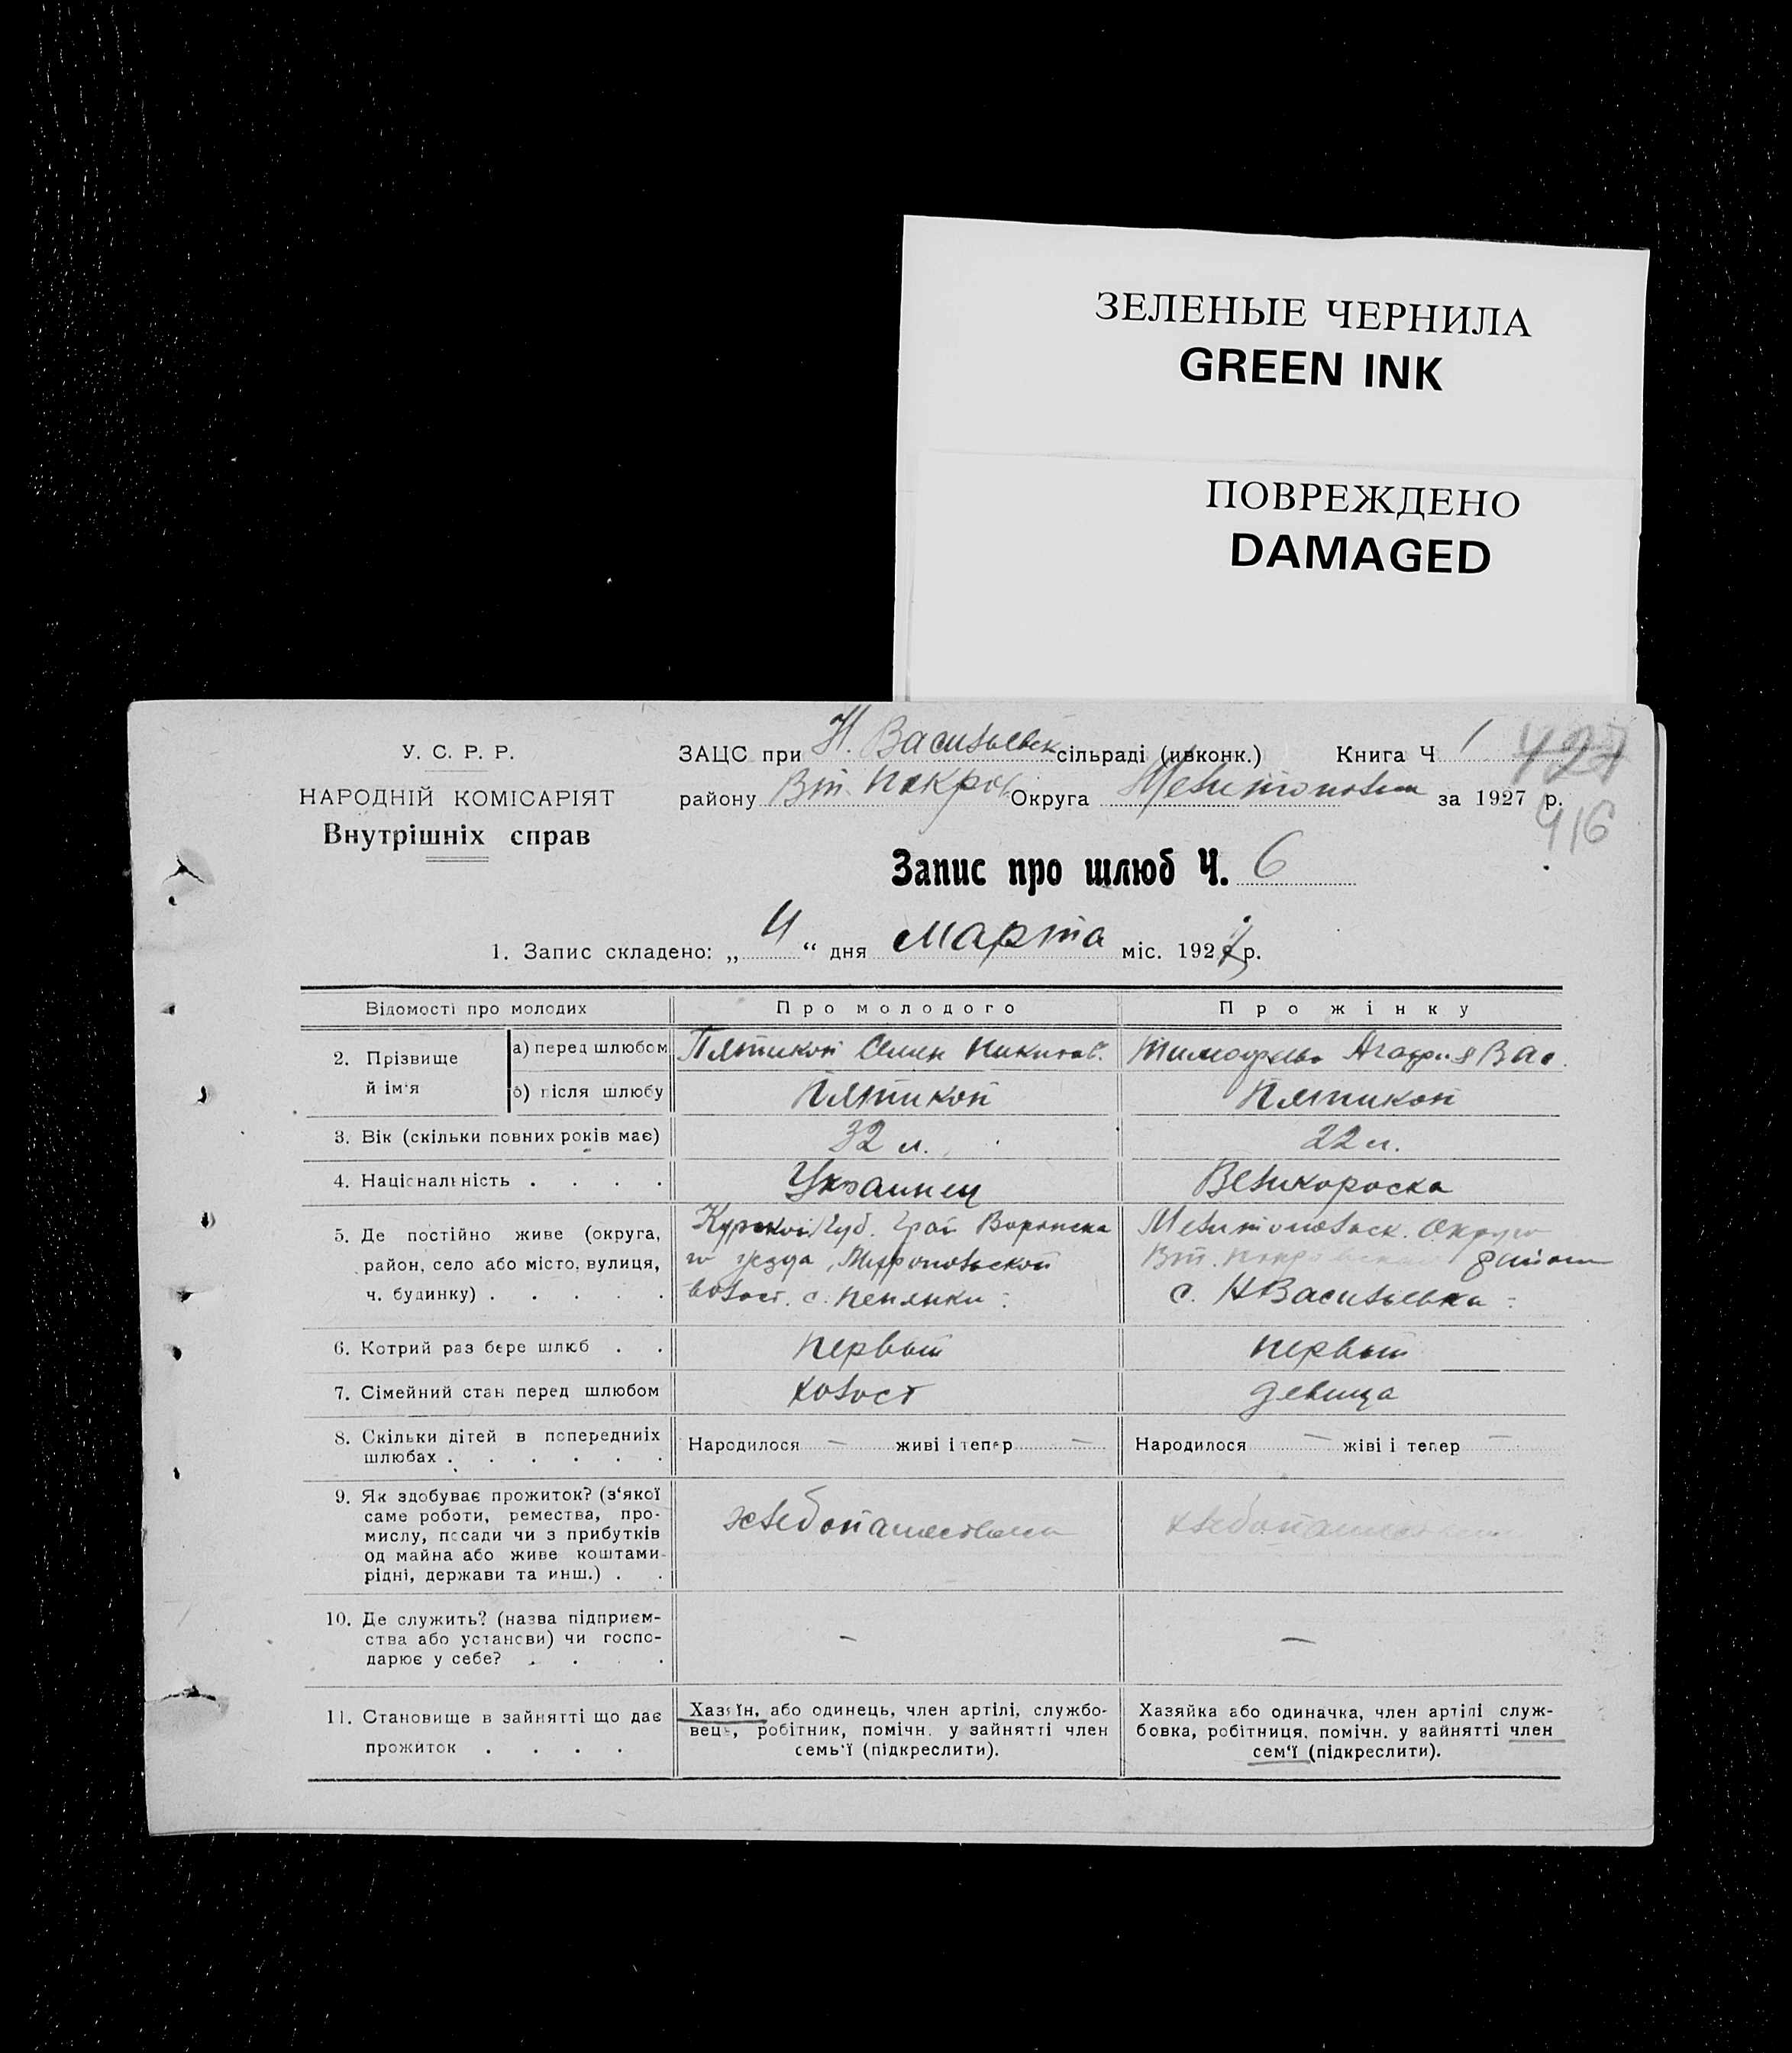 ЗЕЛЕНЫЕ ЧЕРНИЛА
GREEN INK
ПОВРЕЖДЕНО
DAMAGED
У. С. Р. Р.
НАРОДНІЙ КОМІСАРІЯТ
Внутрішніх справ
ЗАЦС при Н. Васильевск сільраді (ивконк.) Книга Ч 1 427
району Вт. Покров Округа за 1927 р.
416
Запис про шлюб Ч. 6
1. Запис складено: „ 4 “ дня марта міс. 1927 р.
Відомості про молодих
Про молодого
Про жінку
2. Прізвище й ім‘я
а) перед шлюбом
Пятикоп Семен Никитов.
Тимофеева Агафия Вас.
б) після шлюбу
Пятикоп
Пятикоп
3. Вік (скільки повних років має)
32 л.
22 л.
4. Національність . . . .
Украинец
Великороска
5. Де постійно живе (округа,
район, село або місто, вулиця,
ч. будинку) . . . . .
Курской Губ. Грай Воронска
го уезда, Миропольской
волост. с. Пенянки
Мелитопольск. Округа
Вт. Покровский район
с. Н Васильевка
6. Котрий раз бере шлюб . .
первый
первый
7. Сімейний стан перед шлюбом
холост
девица
8. Скільки дітей в попередніх
шлюбах . . . . . .
Народилося — живі і тепер —
Народилося — жіві і тепер —
9. Як здобуває прожиток? (з‘якої
саме роботи, ремества, про-
мислу, посади чи з прибутків
од майна або живе коштами
рідні, держави та инш.) . .
хлебопашеством
хлебопашеством
10. Де служить? (назва підприєм-
ства або установи) чи госпо-
дарює у себе? . . . .
—
—
11. Становище в зайнятті що дає
прожиток . . . .
Хазяїн, або одинець, член артілі, службо-
вець, робітник, помічн. у зайнятті член
семь‘ї (підкреслити).
Хазяйка або одиначка, член артілі служ-
бовка, робітниця, помічн. у зайнятті член
сем‘ї (підкреслити).